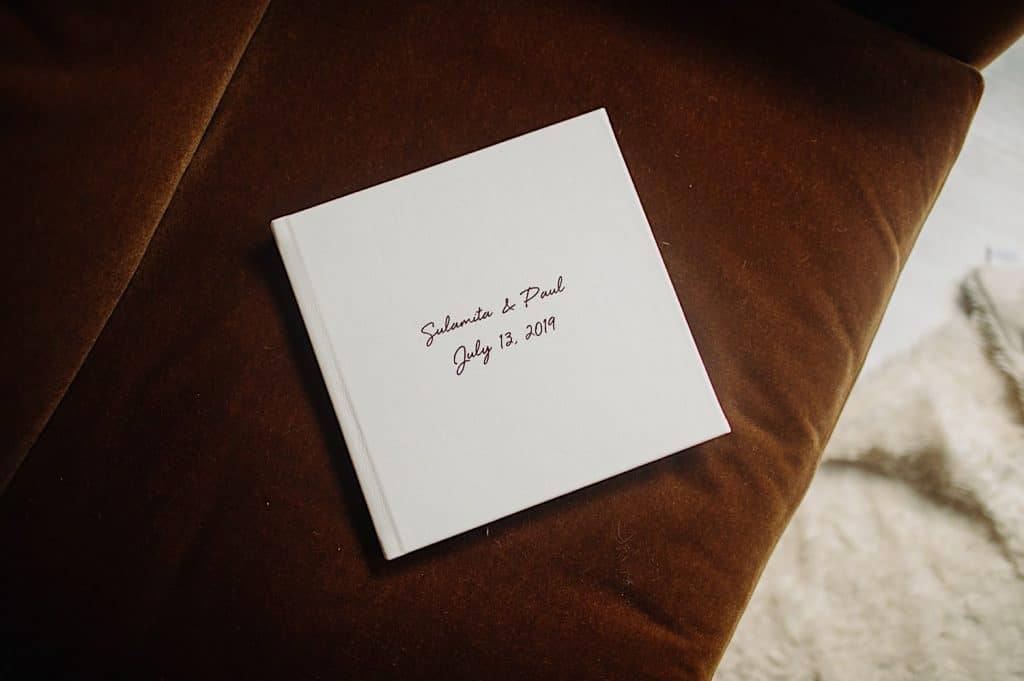 Sulamita & Paul
July 13, 2019